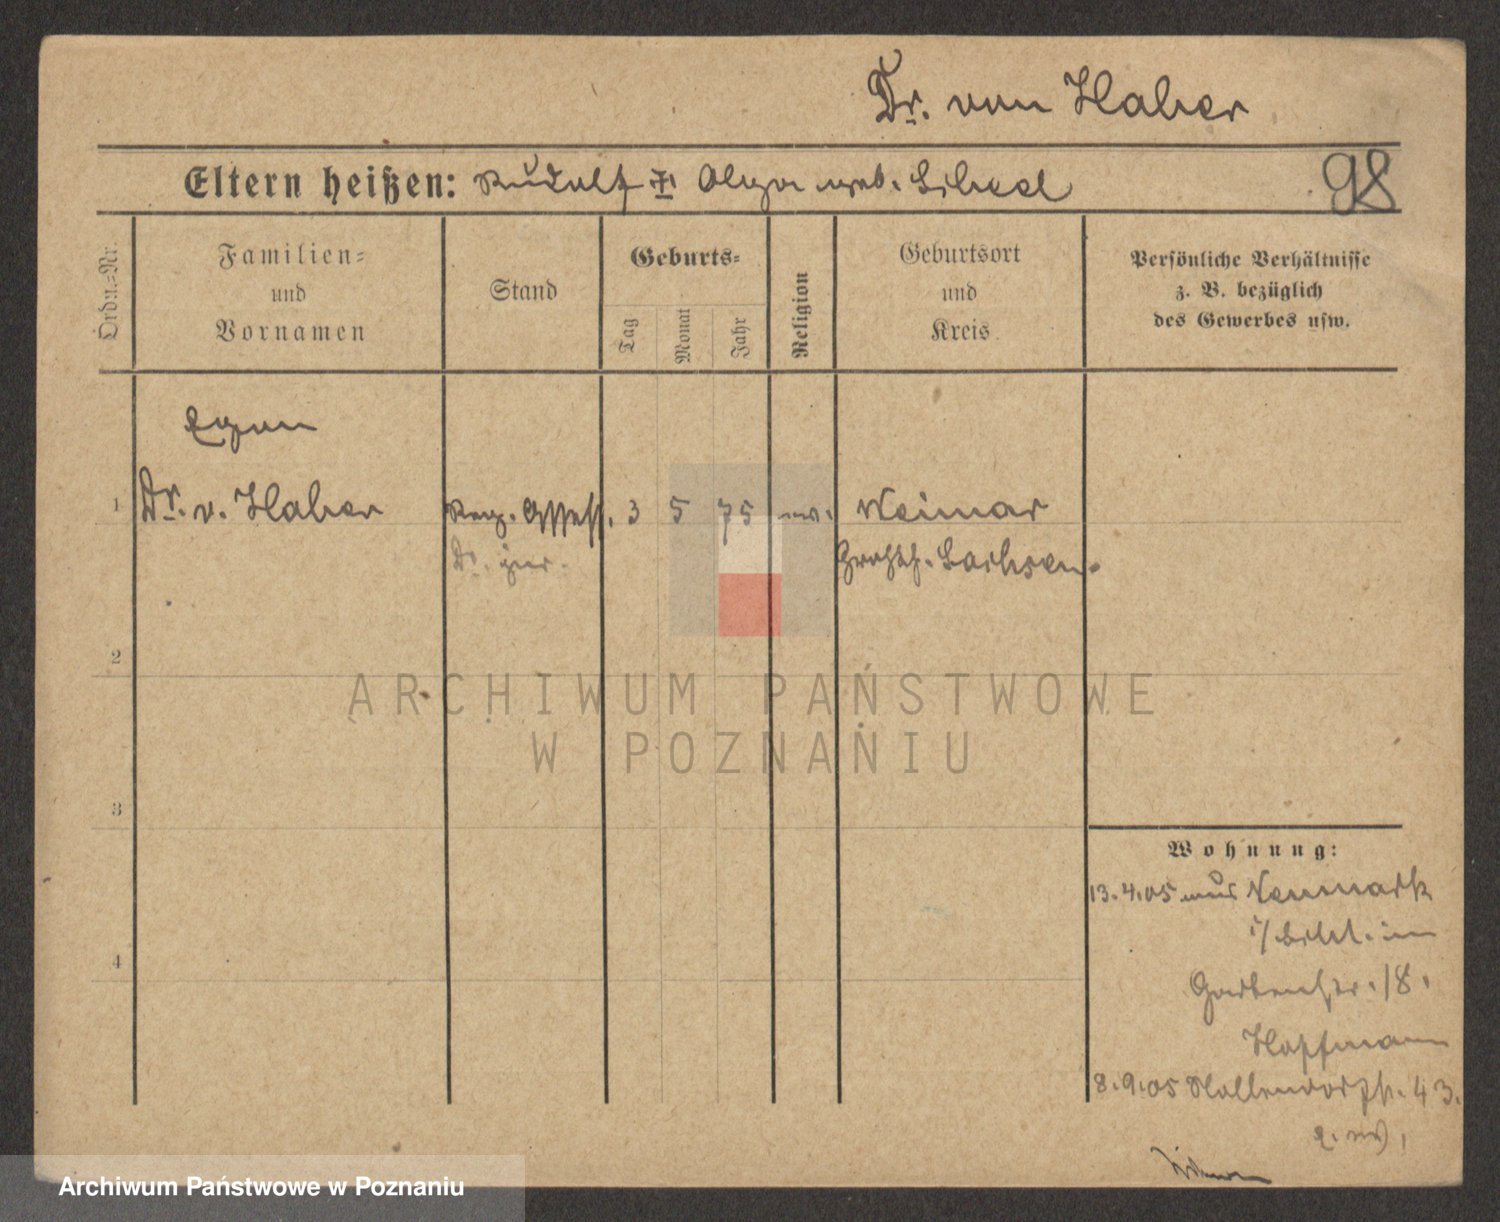 Dr. von Haber
Eltern heißen: Rudolf u. Olga geb.
98
Ordn.=Nr.
Familien=
und
Vornamen
Stand
Geburts=
Tag
Monat
Jahr
Religion
Geburtsort
und
Kreis
Persönliche Verhältnisse
z. B. bezüglich
des Gewerbes usw.
Egon
1 Dr. v. Haber Reg. Assess. 3 5 75 ev. Weimar
Dr. jur. Großh. Sachsen.
2
ARCHIWUM PAŃSTWOWE
W POZNANIU
3
Wohnung:
13.4.05 aus Neumark
i/ Schl. in
Gartenstr. 18.
Hoffmann
4
8.9.05 43.
Archiwum Państwowe w Poznaniu